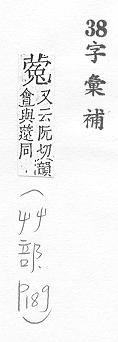 38字彙補
蒬又云阮切韻
會與薳同.
(艸部.P189)